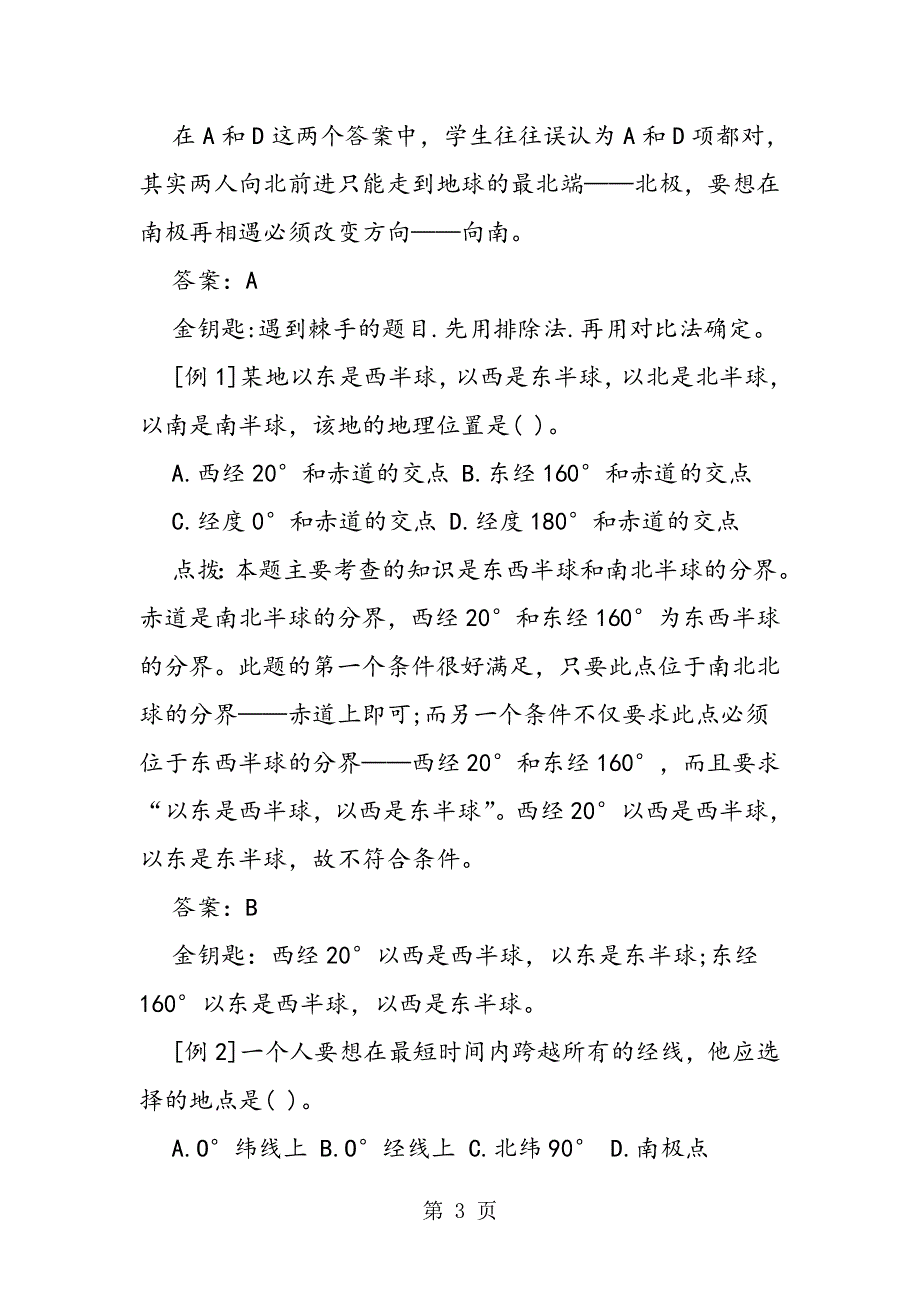 在 A 和 D 这两个答案中，学生往往误认为 A 和 D 项都对，
其实两人向北前进只能走到地球的最北端——北极，要想在
南极再相遇必须改变方向——向南。
答案：A
金钥匙:遇到棘手的题目.先用排除法.再用对比法确定。
[例 1]某地以东是西半球，以西是东半球，以北是北半球，
以南是南半球，该地的地理位置是( )。
A.西经 20°和赤道的交点 B.东经 160°和赤道的交点
C.经度 0°和赤道的交点 D.经度 180°和赤道的交点
点拨：本题主要考查的知识是东西半球和南北半球的分界。
赤道是南北半球的分界，西经 20°和东经 160°为东西半球
的分界。此题的第一个条件很好满足，只要此点位于南北北
球的分界——赤道上即可;而另一个条件不仅要求此点必须
位于东西半球的分界——西经 20°和东经 160°，而且要求
“以东是西半球，以西是东半球”。西经 20°以西是西半球，
以东是东半球，故不符合条件。
答案：B
金钥匙：西经 20°以西是西半球，以东是东半球;东经
160°以东是西半球，以西是东半球。
[例 2]一个人要想在最短时间内跨越所有的经线，他应选
择的地点是( )。
A.0°纬线上 B.0°经线上 C.北纬 90° D.南极点
第 3 页